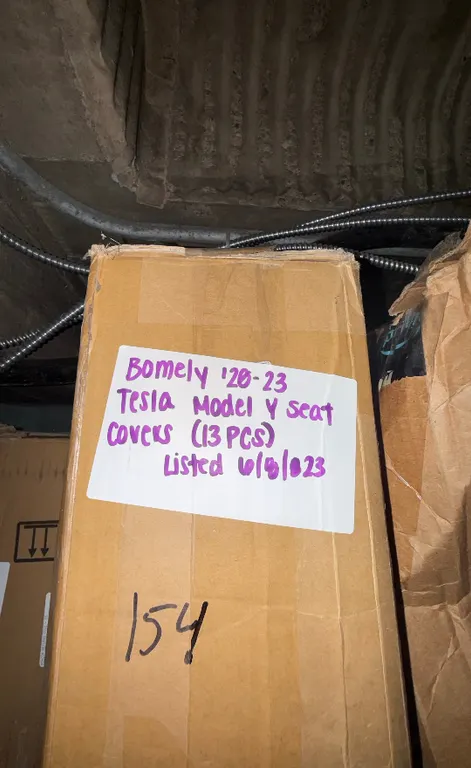 Bomely '20-23
Tesla Model Y Seat
Covers (13 PCS)
Listed 6/8/23
154